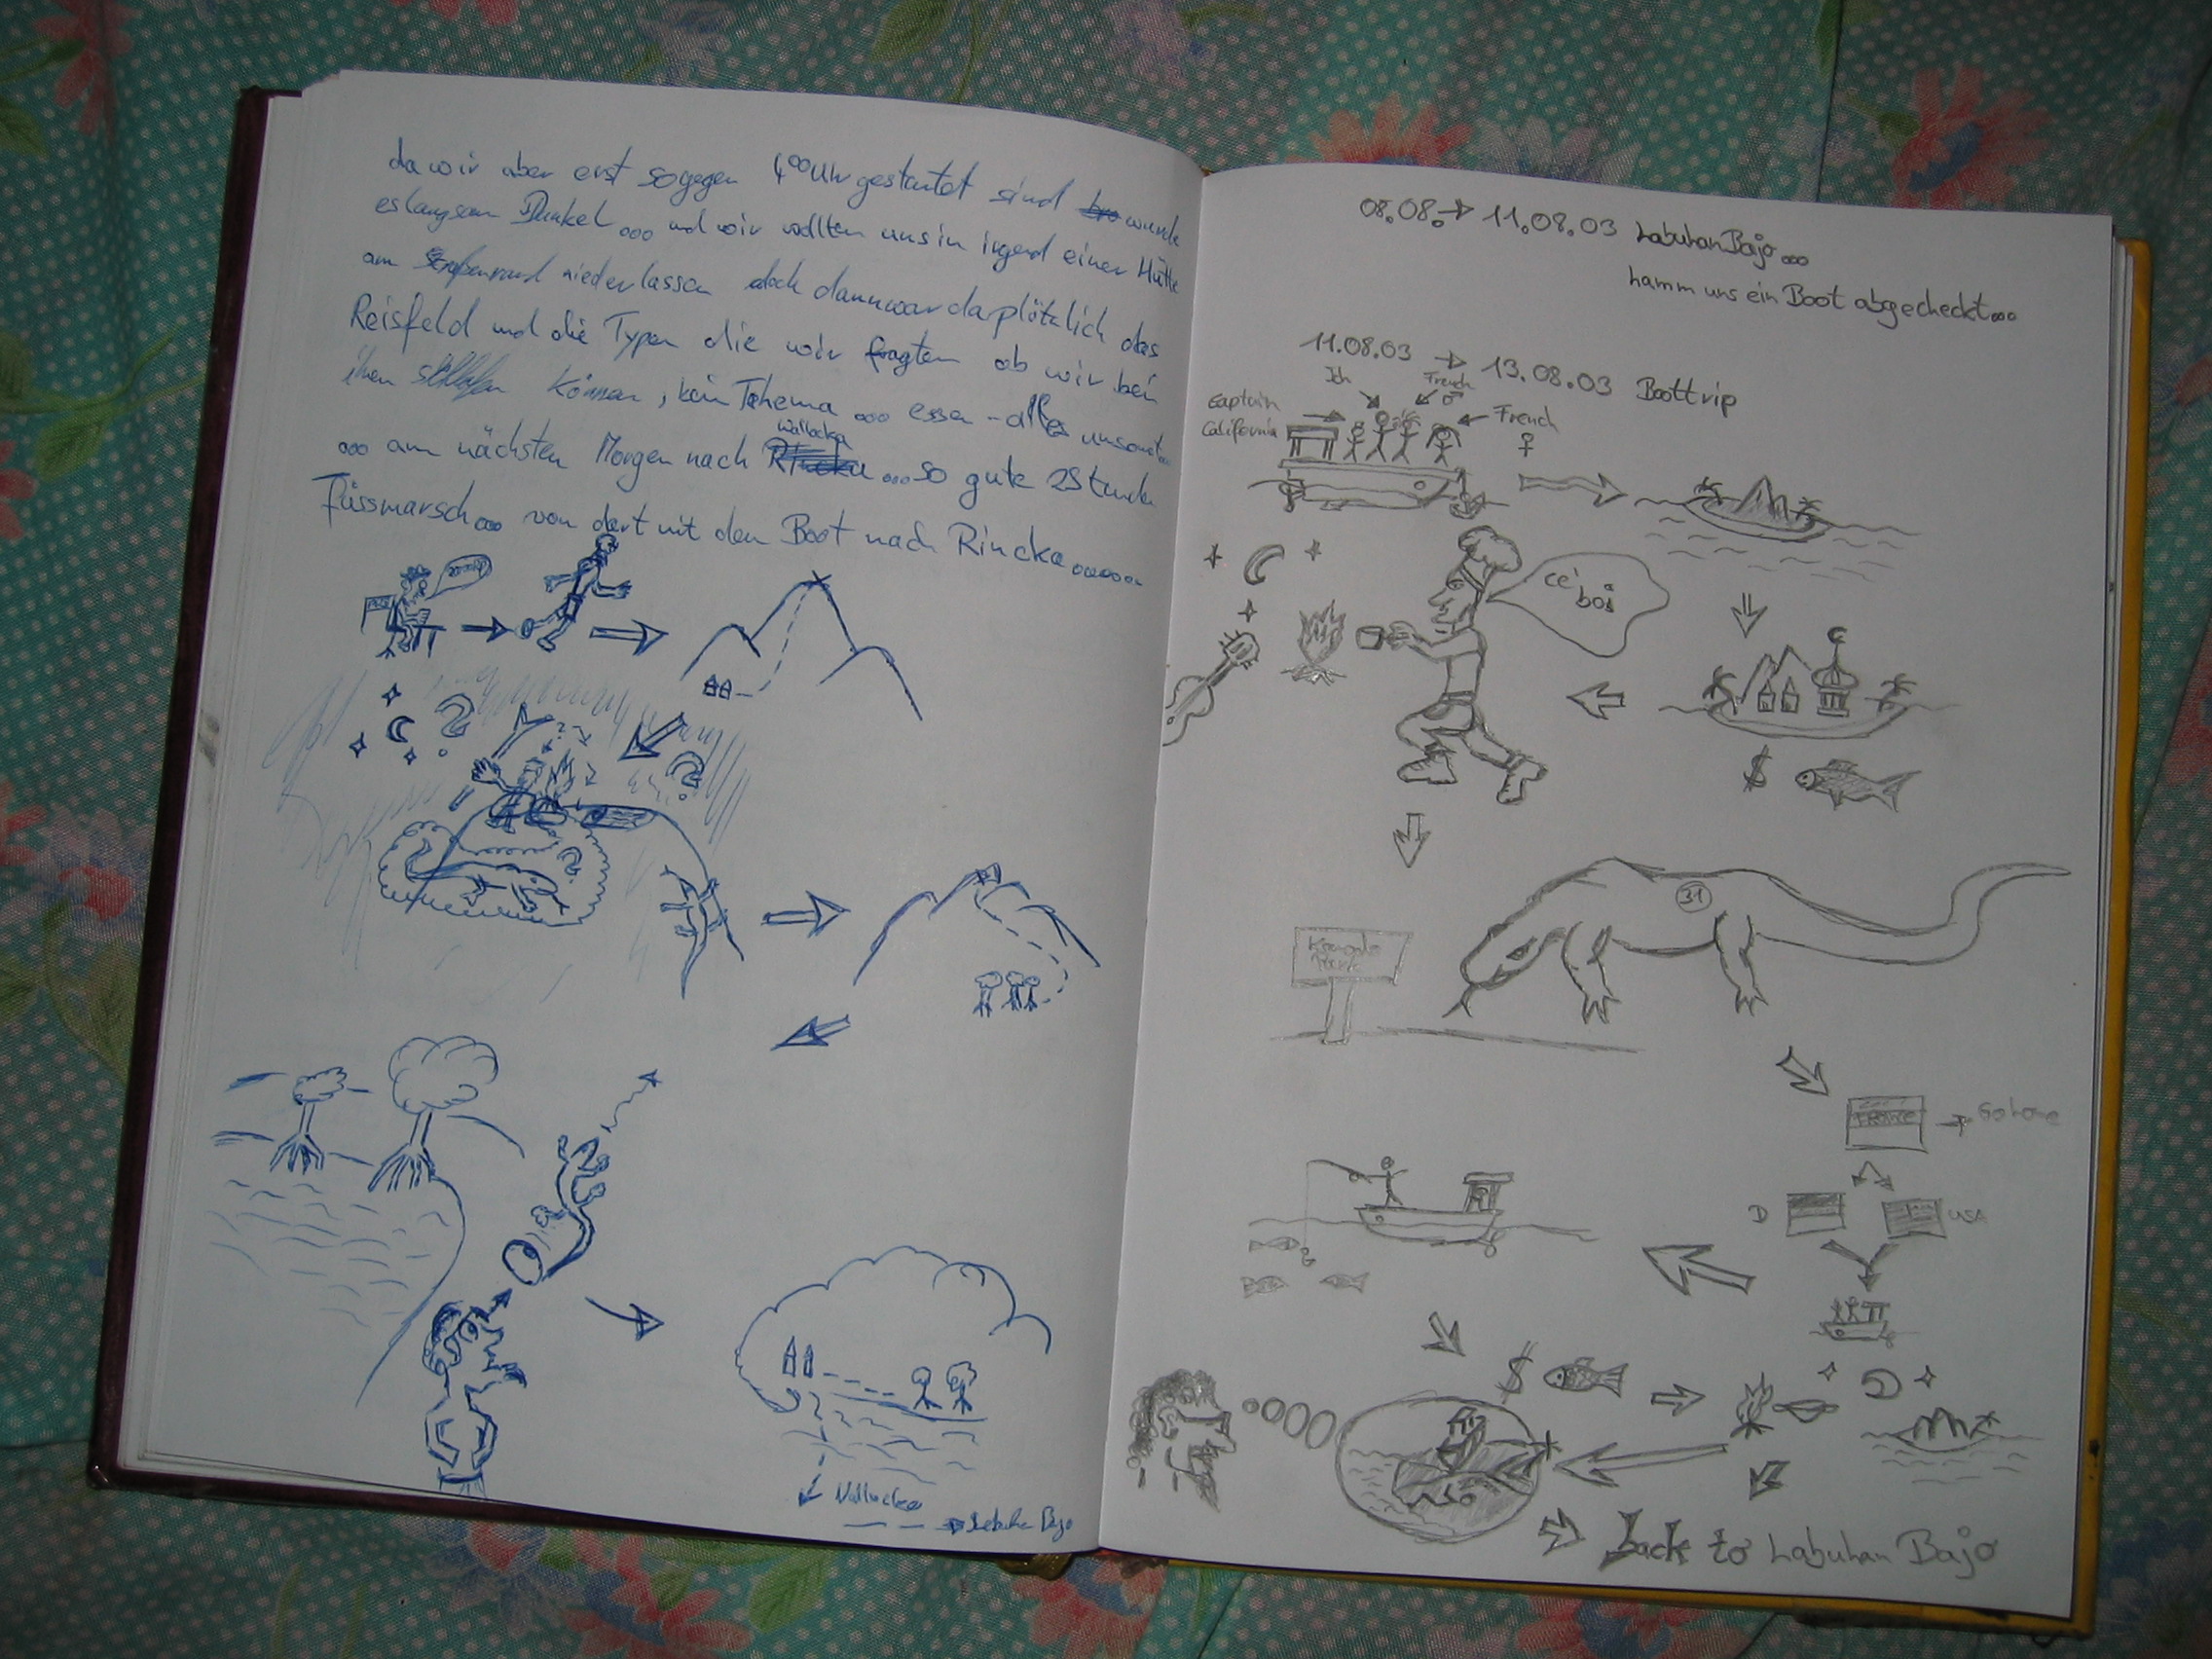 da wir aber erst so gegen 4⁰⁰ Uhr gestartet sind wurde
es langsam Dunkel ooo und wir wollten uns in irgend einer Hütte
am Straßenrand niederlassen doch dann war da plötzlich das
Reisfeld und die Typen die wir fragten ob wir bei
ihnen schlafen können, kein Tehema ooo essen - alles umsonst
ooo am nächsten Morgen nach Wallocka ooo so gute 2 Stunden
Füssmarsch ooo von dort mit dem Boot nach Rincka oooooo
Labuhan Bajo
08.08. → 11.08.03 Labuhan Bajo ooo
hamm uns ein Boot abgecheckt ooo
11.08.03 → 13.08.03 Boottrip
Ich
French ♂
Captain
California
French
♀
ce' boi
31
Komodo
Park
$
France → Go home
D
USA
$
back to Labuhan Bajo